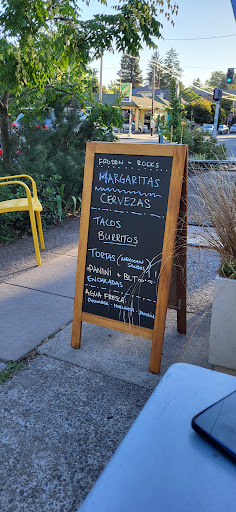 FROZEN & ROCKS
MARGARITAS
CERVEZAS
TACOS
BURRITOS
TORTAS (MEXICAN
PANINI & BLT
ENCHILADAS
AGUA FRESCA